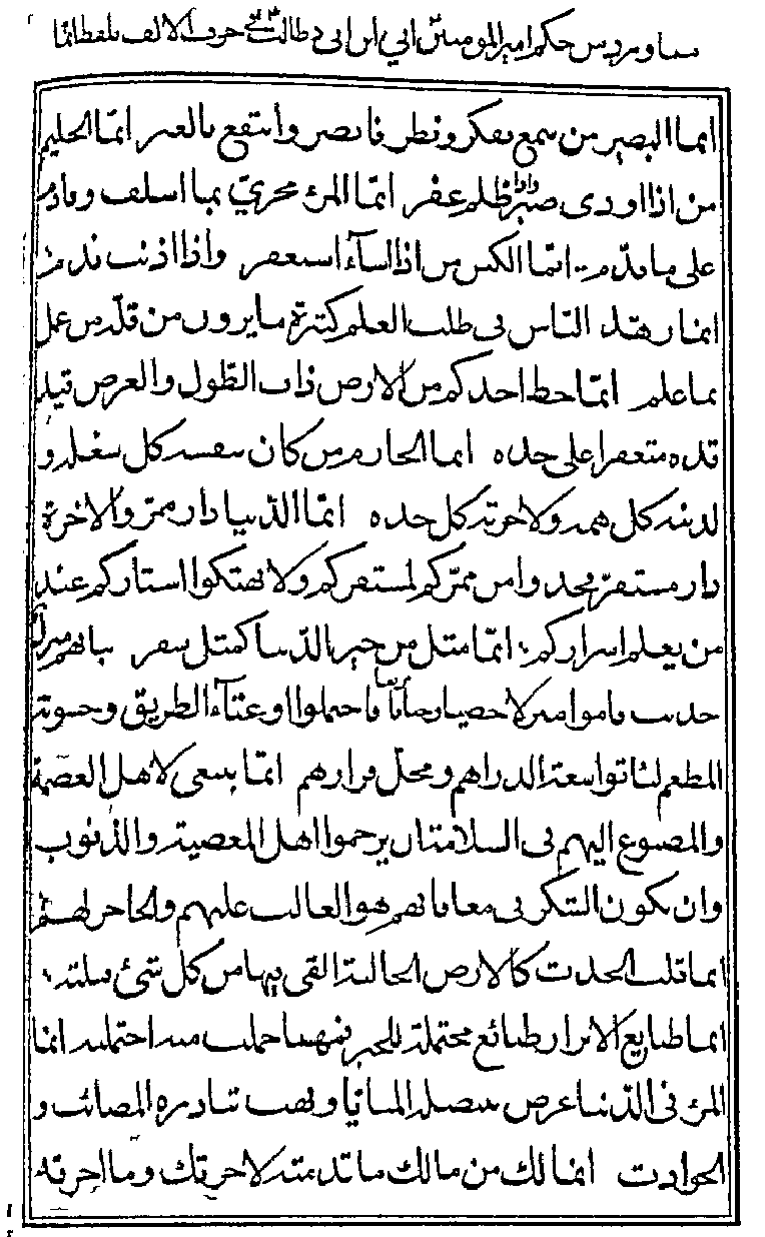 مما ورد من حكم امير المومنين علي ابن ابي طالب في حرف الالف بلفظ انما
انما البصير من سمع بفكر ونظر فابصر وانتفع بالعبر انما الحليم
من اذا اوذى صبر واذا ظلم غفر انما المرء مجزي بما اسلف وقادم
على ما قدم انما الكيس من اذا اساء استغفر واذا اذنب ندم
انما زهد الناس فى طلب العلم كثرة ما يرون من قلة من عمل
بما علم انما حظ احدكم من الارض ذات الطول والعرض قيد
قده متعفرا على خده انما الحازم من كان بنفسه كل شغله و
لدينه كل همه ولاخرته كل جده انما الدنيا دار ممر والاخرة
دار مستقر فخذوا من ممركم لمستقركم ولا تهتكوا استاركم عند
من يعلم اسراركم انما مثل من خبر الدنيا كمثل سفر نبا بهم منزل
جديب فاموا منزلا خصيبا وجنابا فاحتملوا وعثاء الطريق وخشونة
المطعم لياتوا سعة الدراهم ومحل قرارهم انما ينبغى لاهل العصمة
والمصنوع اليهم فى السلامة ان يرحموا اهل المعصية والذنوب
وان يكون الشكر على معافاتهم هو الغالب عليهم والحاجز لهم
انما قلب الحدث كالارض الخالية القى فيها من كل شئ قبلته
انما طبايع الابرار طبائع محتملة للخير فمهما حملت منه احتملته انما
المرء فى الدنيا غرض تنتضله المنايا ونهب تبادره المصائب و
الحوادث انما لك من مالك ما قدمته لاخرتك وما اخرته